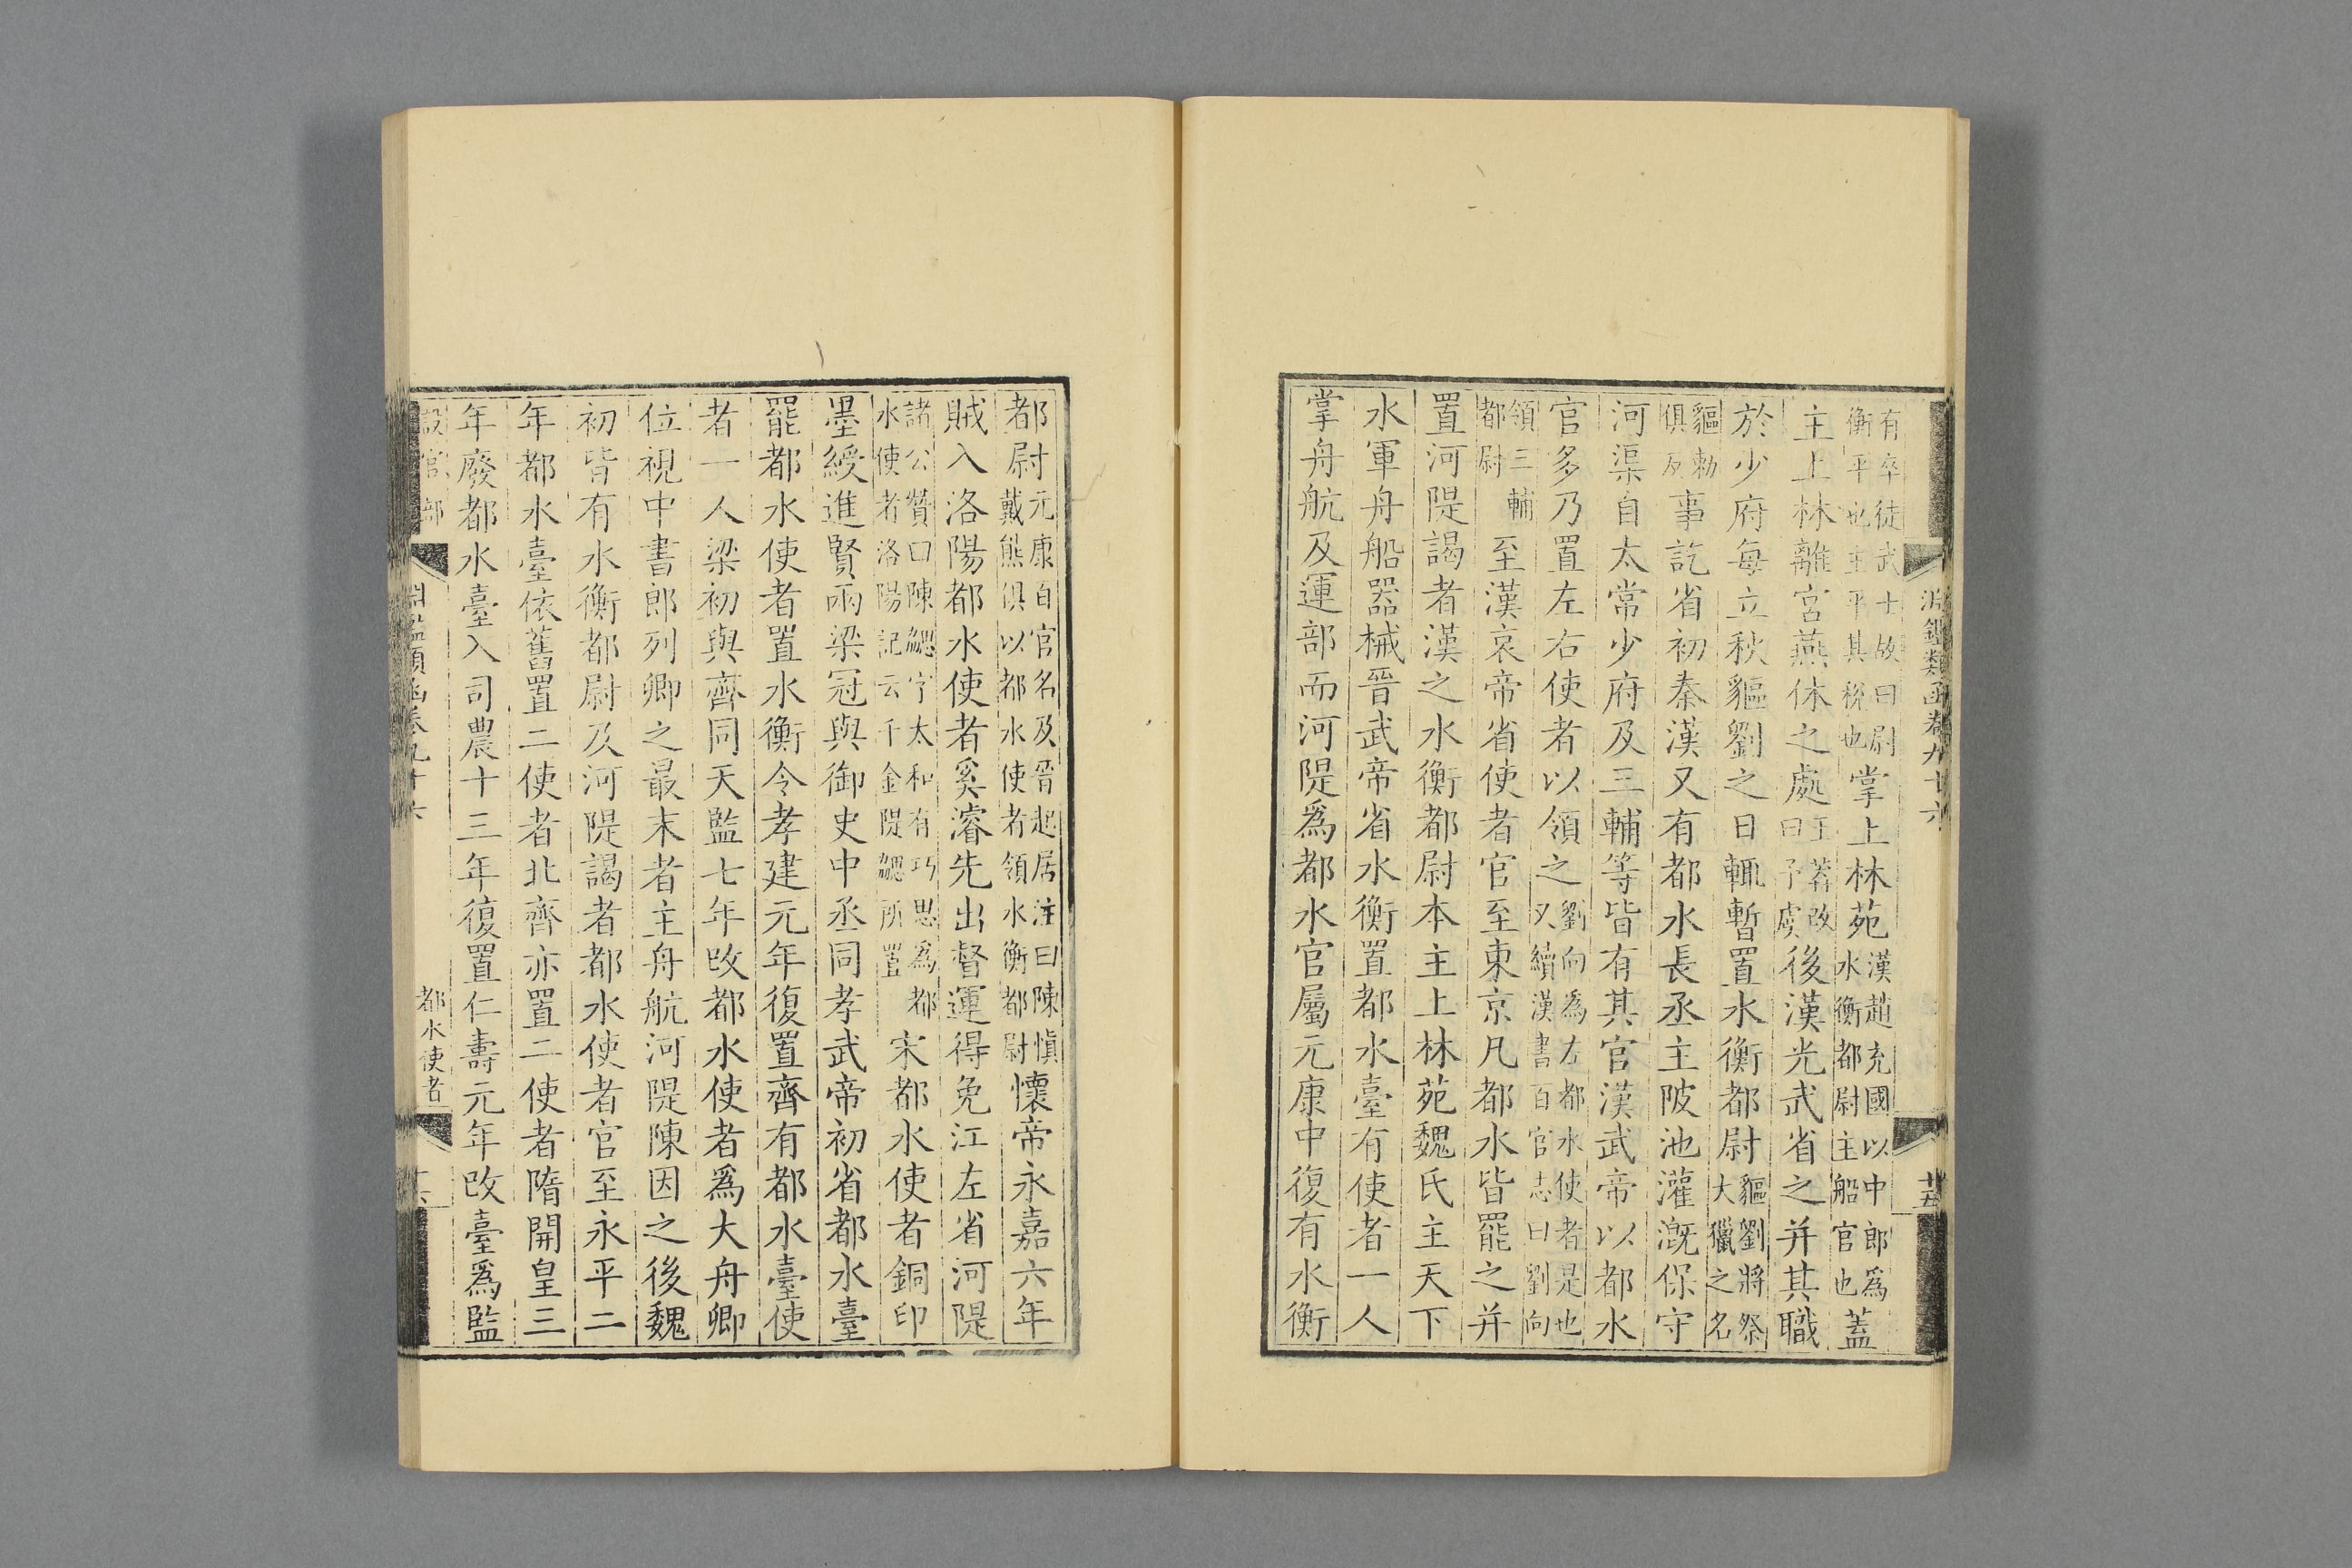 淵鑑類函卷九十六
廿五
有卒徒武士故曰尉
衡平也主平其稅也掌上林苑漢趙充國以中郎爲
水衡都尉主船官也蓋
主上林離宮燕休之處王莽改
曰予虞後漢光武省之并其職
於少府每立秋貙劉之日輒暫置水衡都尉貙劉將祭
大獵之名
貙勑
俱反事訖省初秦漢又有都水長丞主陂池灌溉保守
河渠自太常少府及三輔等皆有其官漢武帝以都水
官多乃置左右使者以領之劉向爲左都水使者是也
又續漢書百官志曰劉向
領三輔
都尉至漢哀帝省使者官至東京凡都水皆罷之并
置河隄謁者漢之水衡都尉本主上林苑魏氏主天下
水軍舟船器械晉武帝省水衡置都水臺有使者一人
掌舟航及運部而河隄爲都水官屬元康中復有水衡
都尉元康百官名及晉起居注曰陳愼
戴熊俱以都水使者領水衡都尉懷帝永嘉六年
賊入洛陽都水使者奚濬先出督運得免江左省河隄
諸公贊曰陳勰字太和有巧思爲都
水使者洛陽記云千金隄勰所置宋都水使者銅印
墨綬進賢兩梁冠與御史中丞同孝武帝初省都水臺
罷都水使者置水衡令孝建元年復置齊有都水臺使
者一人梁初與齊同天監七年改都水使者爲大舟卿
位視中書郎列卿之最末者主舟航河隄陳因之後魏
初皆有水衡都尉及河隄謁者都水使者官至永平二
年都水臺依舊置二使者北齊亦置二使者隋開皇三
年廢都水臺入司農十三年復置仁壽元年改臺爲監
設官部
淵鑑類函卷九十六
都水使者